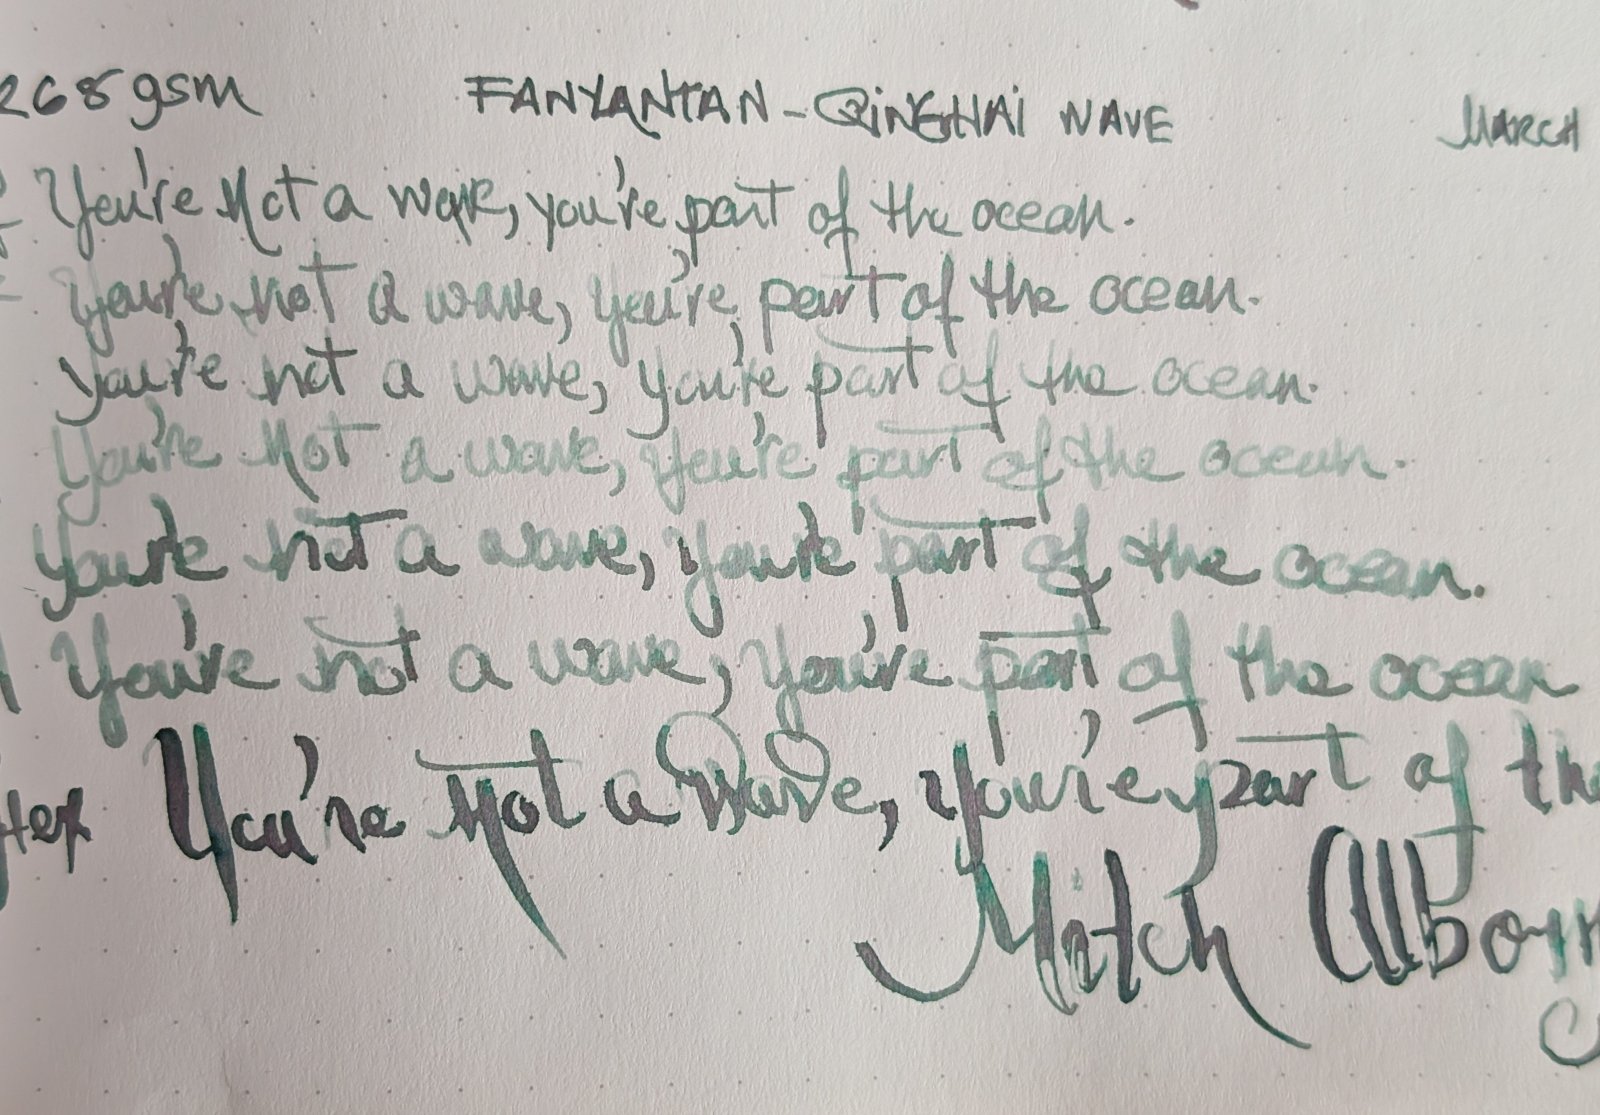 268 gsm FANYANTAN - QINGHAI WAVE MARCH
You're not a wave, you're part of the ocean.
You're not a wave, you're part of the ocean.
You're not a wave, you're part of the ocean.
You're not a wave, you're part of the ocean.
You're not a wave, you're part of the ocean.
You're not a wave, you're part of the ocean
You're not a wave, you're part of the
Mitch Albom